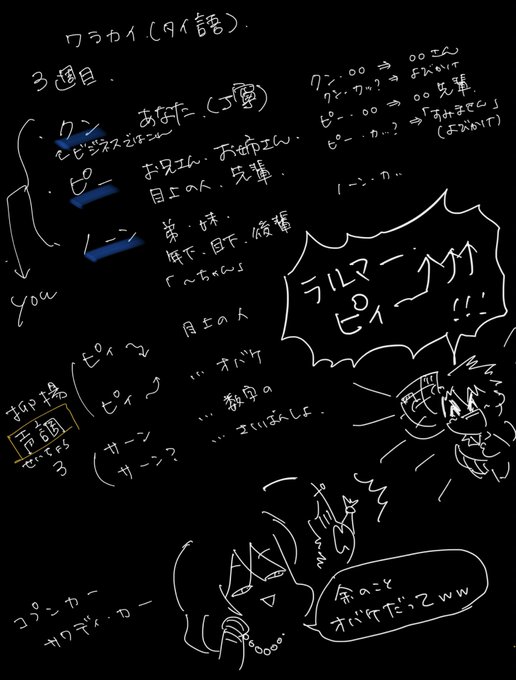 ワラカイ.(タイ語).
3週目.
・クン あなた.(丁寧)
↑ビジネスではこれ〜
クン・○○ ⇒ ○○さん
クン・カッ? ⇒ よびかけ
ピー・○○ ⇒ ○○先輩
ピー・カッ? ⇒ 「すみません」
(よびかけ)
・ピー お兄さん.お姉さん.
目上の人.先輩.
ノーン・カッ
・ノーン 弟.妹.
年下.目下.後輩
「〜ちゃん」
you
ラルマー.
ピィー↑↑↑
!!!
抑揚
声調
せいちょう
3
ピィ〜↘ 目上の人
ピィ⤴ …オバケ
サーン … 数字の
サーン? … さいばんしょ.
コプンカー
サワディ・カー
余のこと
オバケだってww